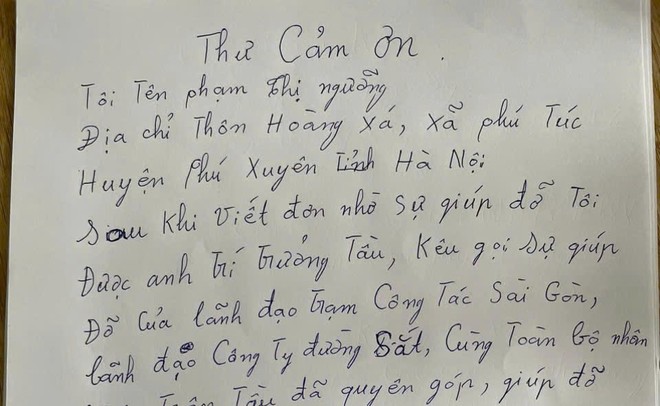 Thư Cảm ơn.
Tôi Tên phạm thị ngưỡng
Địa chỉ Thôn Hoàng Xá, Xã phú Túc
Huyện Phú Xuyên tỉnh Hà Nội
Sau Khi Viết đơn nhờ sự giúp đỡ Tôi
Được anh trí trưởng Tầu, Kêu gọi sự giúp
Đỡ Của lãnh đạo trạm Công Tác Sài Gòn,
lãnh đạo Công Ty đường Sắt, Cùng Toàn bộ nhân
Tầu đã quyên góp, giúp đỡ